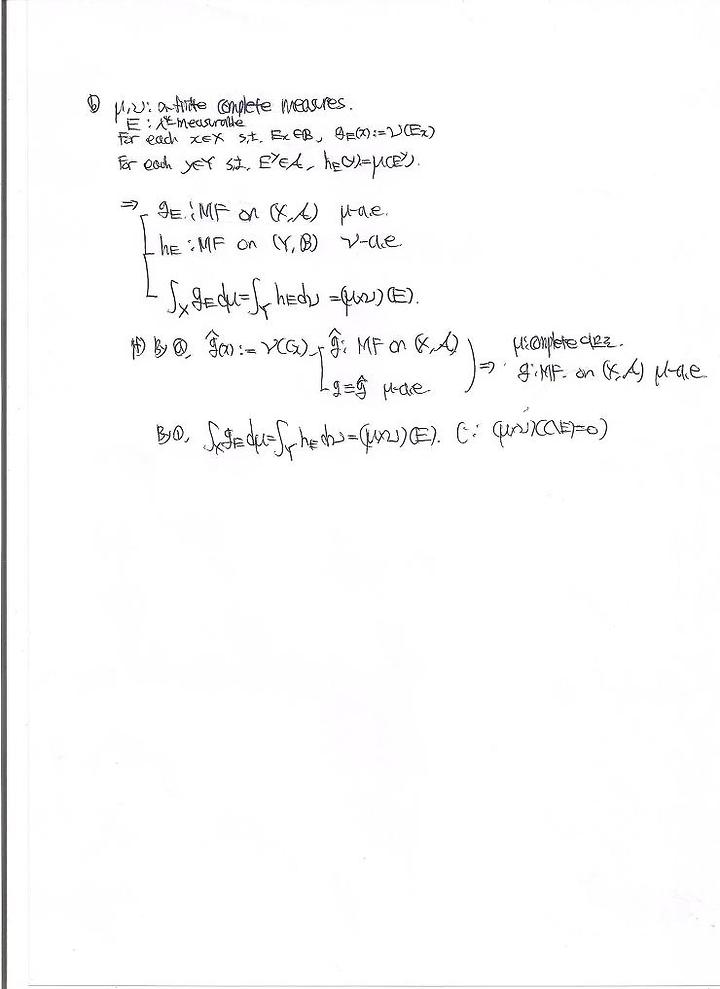 ⑥ μ,ν: σ-finite complete measures.
E : λ*-measurable
For each x∈X s.t. Ex∈B, gE(x):=ν(Ex)
For each y∈Y s.t. E^y∈A, hE(y)=μ(E^y).
⇒ gE : MF on (X,A) μ-a.e.
hE : MF on (Y,B) ν-a.e
∫X gE dμ=∫Y hE dν =(μ×ν)(E).
pf) By ⑤, ĝ(x):=ν(Gx) ĝ: MF on (X,A) μ:complete
g=ĝ μ-a.e. ⇒ g:MF on (X,A) μ-a.e
By ①, ∫X gE dμ=∫Y hE dν=(μ×ν)(E). (∵ (μ×ν)(G\E)=0)